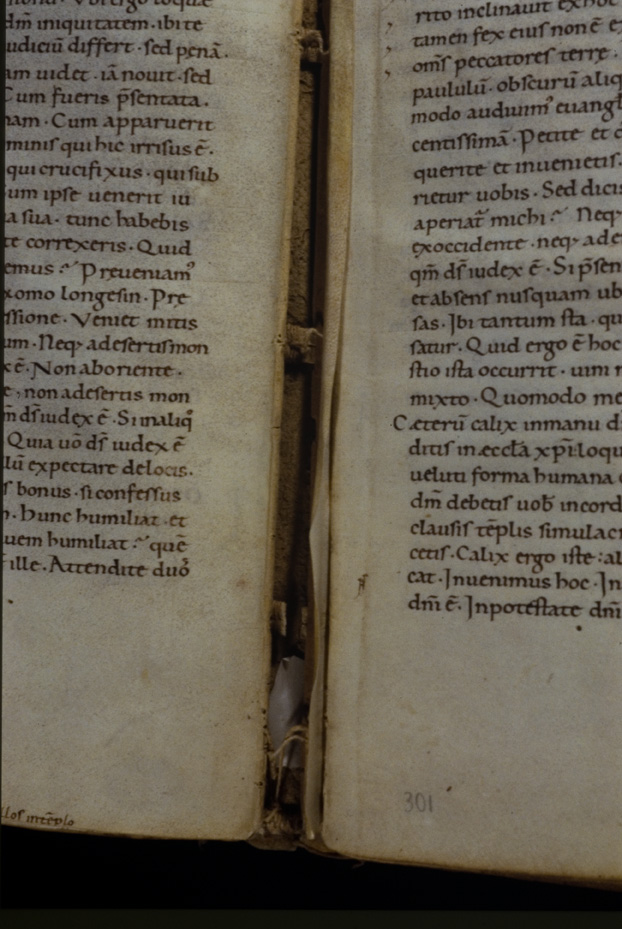 dm̄ iniquitatem. ibi te
udiciū differt. sed penā.
am uidet. iā nouit. sed
Cum fueris p̄sentata.
nam. Cum apparuerit
minis qui hic irrisus ē.
qui crucifixus. qui sub
um ipse uenerit iu
a sua. tunc habebis
te correxeris. Quid
emus :~ Preueniam᾽
xomo longesin. Pre
ssione. Veniet mitis
um. Neq; adesertismon
x ē. Non aboriente.
e, non adesertis mon
m ds̄ iudex ē. Si inaliq̊
Quia uō ds̄ iudex ē
lū expectare delocis.
s bonus. si confessus
Hunc humiliat. et
uem humiliat :~ quē
ille. Attendite duō
llos intēplo
rito inclinauit ex hoc
tamen fex eius non ē e
om̄s peccatores terre.
paululū. obscurū aliq
modo audiuim᾽ euangl
centissimā. Petite et
querite et inuenietis.
rietur uobis. Sed dicis
aperiat̄ michi :~ Neq;
exoccidente. neq; ade
qm̄ ds̄ iudex ē. Si p̄sen
et absens nusquam ub
sas. Ibi tantum sta. qu
satur. Quid ergo ē hoc
stio ista occurrit. uini
mixto. Quomodo me
Ceterū calix inmanu d
ditis in eccl̄a xp̄i. loqu
ueluti forma humana
dm̄ debetis uob̄ incord
clausis tēplis simulacr
cetis. Calix ergo iste: al
cat. Inuenimus hoc. In
dn̄i ē. Inpotestate dn̄i
301